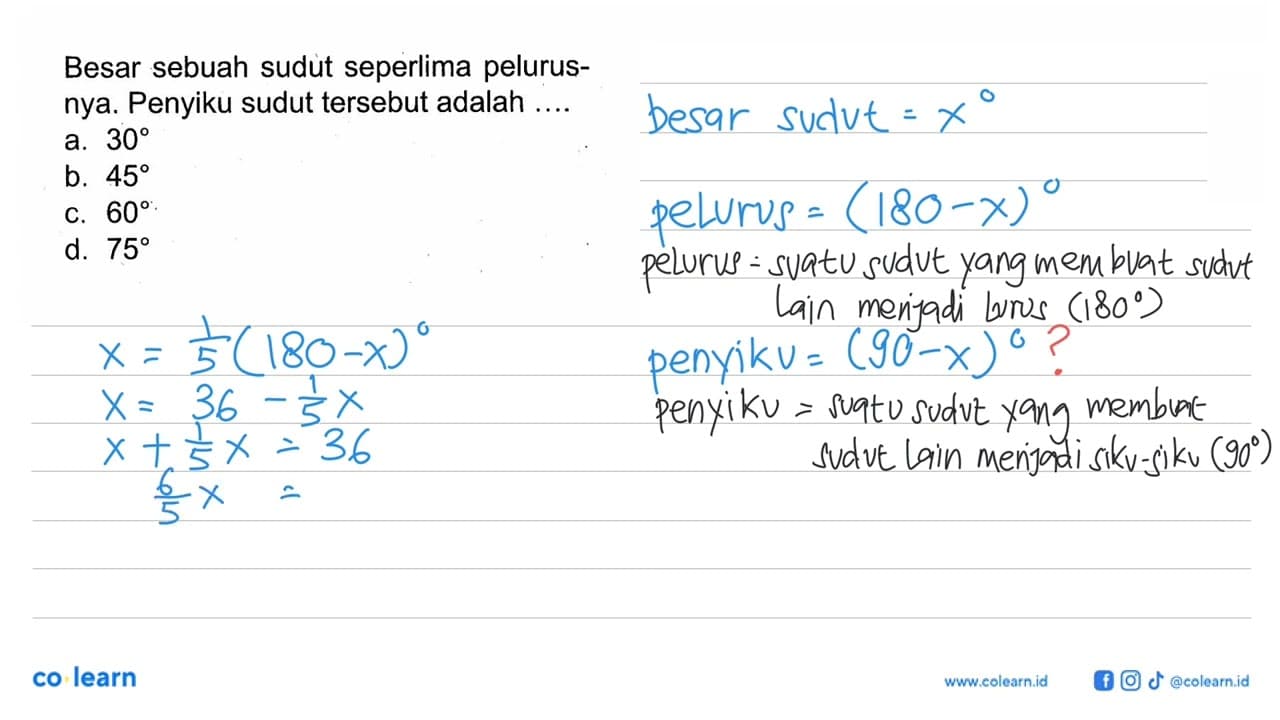 Besar sebuah sudut seperlima pelurus-
nya. Penyiku sudut tersebut adalah ....
a. 30°
b. 45°
c. 60°
d. 75°
x = 1/5 (180-x)°
x = 36 - 1/5 x
x + 1/5 x = 36
6/5 x =
besar sudut = x°
pelurus = (180-x)°
pelurus = suatu sudut yang membuat sudut
lain menjadi lurus (180°)
penyiku = (90-x)° ?
penyiku = suatu sudut yang membuat
sudut lain menjadi siku-siku (90°)
co learn
www.colearn.id
@colearn.id